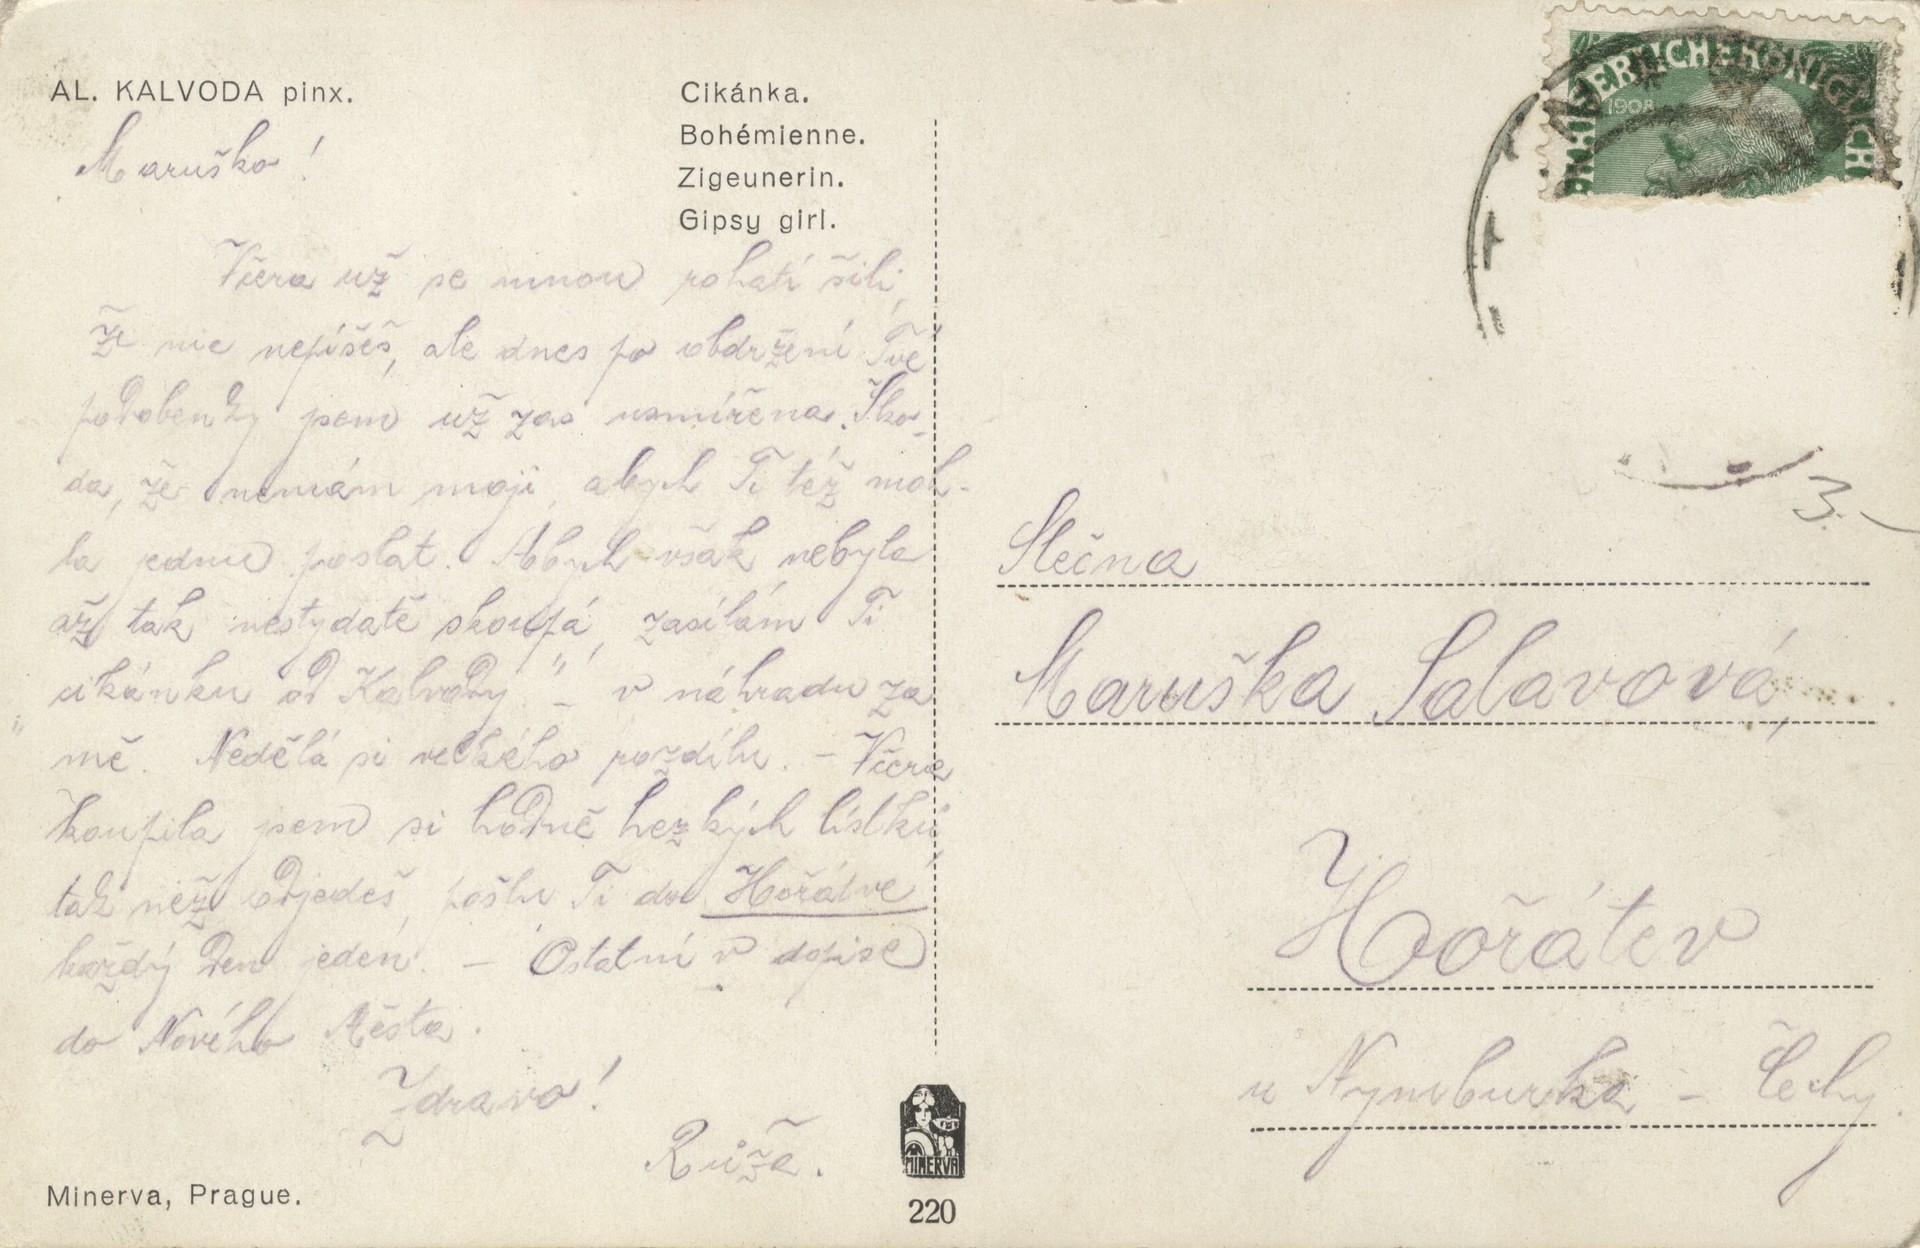 AL. KALVODA pinx.
Cikánka.
Bohémienne.
Zigeunerin.
Gipsy girl.
Maruško!
Včera už se mnou rohatí šili,
že nic nepíšeš, ale dnes po obdržení Tvé
podobenky jsem už zas usmířena. Ško-
da, že nemám moji, abych Ti též moh-
la jednu poslat. Abych však nebyla
až tak nestydatě skoupá, zasílám Ti
"cikánku od Kalvody" – v náhradu za
mě. Nedělá si velkého rozdílu. – Včera
koupila jsem si hodně hezkých lístků,
tak než odjedeš, pošlu Ti do Hořátve
každý den jeden. – Ostatní v dopise
do Nového Města.
Zdravo!
Růža.
Minerva, Prague.
MINERVA
220
KAISERLICHE KÖNIGLICHE
1908
3.-
Slečna
Maruška Salavová,
Hořátev
u Nymburka – Čechy.